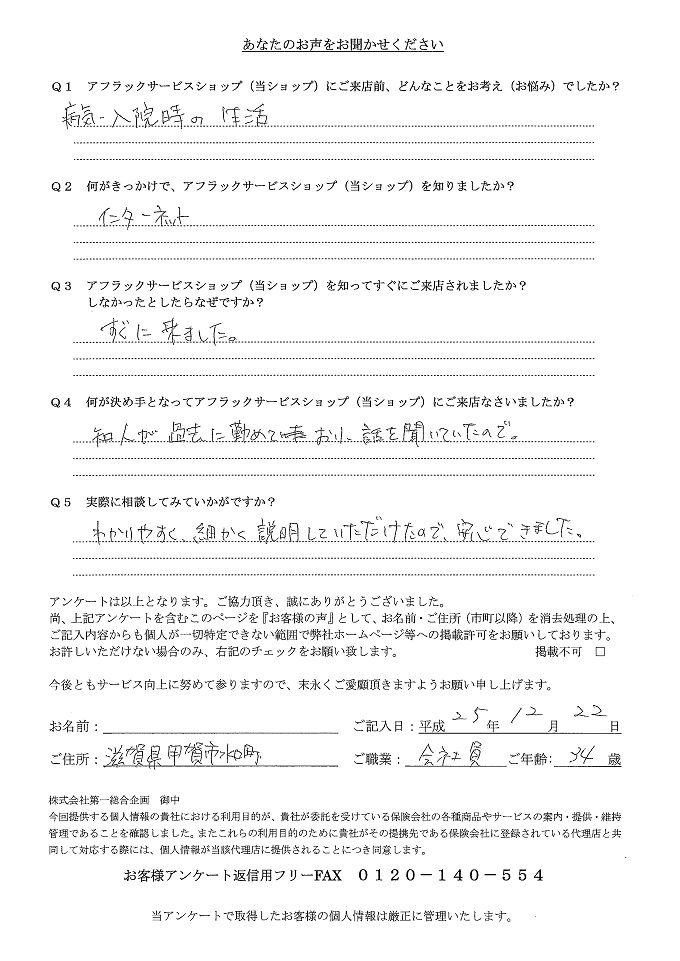 あなたのお声をお聞かせください
Q1 アフラックサービスショップ（当ショップ）にご来店前、どんなことをお考え（お悩み）でしたか？
病気-入院時の 生活
Q2 何がきっかけで、アフラックサービスショップ（当ショップ）を知りましたか？
インターネット
Q3 アフラックサービスショップ（当ショップ）を知ってすぐにご来店されましたか？
しなかったとしたらなぜですか？
すぐに 来ました。
Q4 何が決め手となってアフラックサービスショップ（当ショップ）にご来店なさいましたか？
知人が 過去に勤めて おり、話を聞いていたので。
Q5 実際に相談してみていかがですか？
わかりやすく、細かく説明していただけたので、安心できました。
アンケートは以上となります。ご協力頂き、誠にありがとうございました。
尚、上記アンケートを含むこのページを『お客様の声』として、お名前・ご住所（市町以降）を消去処理の上、
ご記入内容からも個人が一切特定できない範囲で弊社ホームページ等への掲載許可をお願いしております。
お許しいただけない場合のみ、右記のチェックをお願い致します。 掲載不可 □
今後ともサービス向上に努めて参りますので、末永くご愛顧頂きますようお願い申し上げます。
お名前： ご記入日：平成 25 年 12 月 22 日
ご住所：滋賀県甲賀市水口町 ご職業：会社員 ご年齢：34 歳
株式会社第一総合企画 御中
今回提供する個人情報の貴社における利用目的が、貴社が委託を受けている保険会社の各種商品やサービスの案内・提供・維持
管理であることを確認しました。またこれらの利用目的のために貴社がその提携先である保険会社に登録されている代理店と共
同して対応する際には、個人情報が当該代理店に提供されることにつき同意します。
お客様アンケート返信用フリーFAX 0120－140－554
当アンケートで取得したお客様の個人情報は厳正に管理いたします。